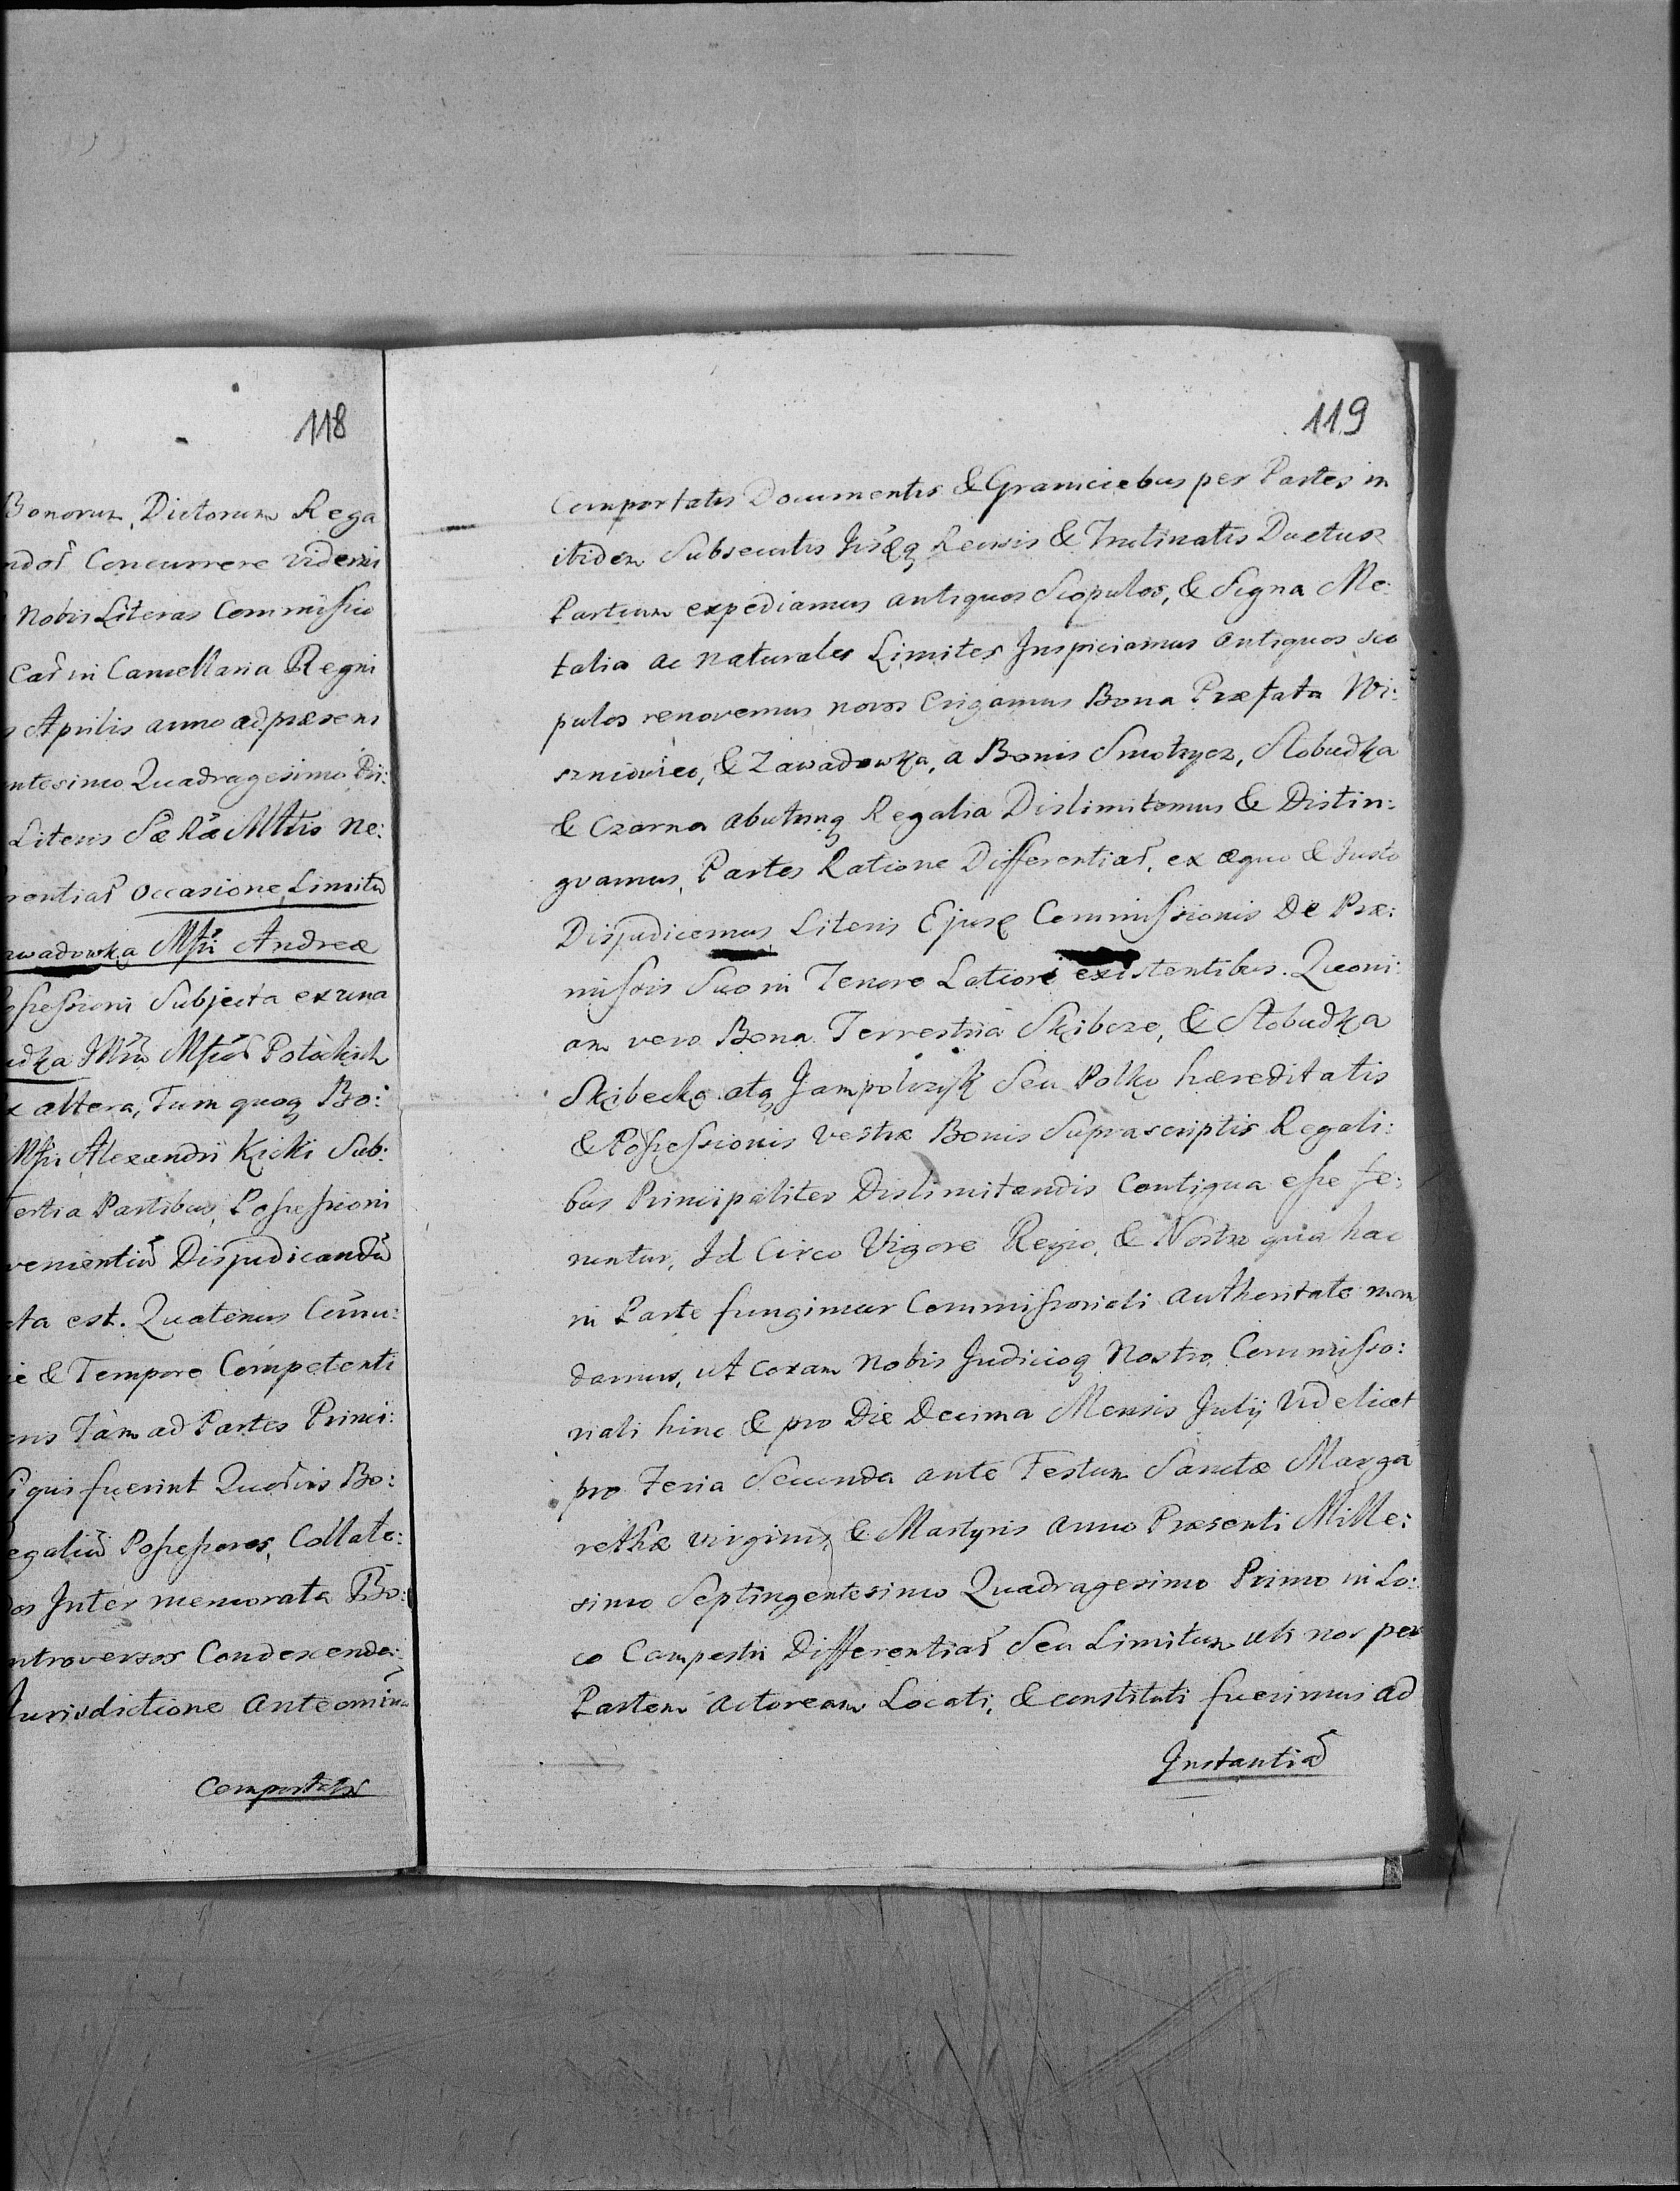 118
Bonorum, Dictorum Rega
Concurrere videmi
Nobis Literas Commissio
in Cancellaria Regni
Aprilis anno ad præsens
ntesimo Quadragesimo Pri:
Literis Sæ Ræ Mttis ne:
occasione Limitũ
awadowka Mfci Andreæ
ossessioni Subjecta ex una
Potockich
altera, Tum quoq Bo:
Mfci Alexandri Kicki Sub:
ertia Partibus, Possessioni
Disjudicandũ
cta est. Quatenus Comu:
ie & Tempore Competenti
Tam ad Partes Princi:
qui fuerint Bo:
egaliũ Possessores, Collate:
os Inter memorata Bo:
ntroversos Condescenda:
Jurisdictione
Comportatis
119
Comportatis Documentis & Graniciebus per Partes in
ibidem Subsecutis & Ductus
Partium expediamus antiquos Scopulos, & Signa Me:
talia ac naturales Limites Inspiciamus antiquos sco
pulos renovemus novos Erigamus Bona Præfata Wi:
szniowiec, & Zawadowka, a Bonis Smotrycz, Slobudka
& Czarna abutrinq Regalia Dislimitemus & Distin:
guamus, Partes Ratione Differentiar, ex æquo & Justo
Disjudicemus Literis Commissionis De Præ:
missis Suo in Tenore Latiori existentibus. Quoni:
am vero Bona Terrestria Skibcze, & Slobudka
Skibecka atq Jampolczyk Seu Polko hæreditatis
& Possessionis Vestræ Bonis Suprascriptis Regali:
bus Principaliter Dislimitandis Contigua esse fe:
runtur, Id Circo Vigore Regio, & Nostra qua hac
in Parte fungimur Commissoriali authoritate man
damus, ut coram Nobis Judicioq Nostro Commisso:
riali hinc & pro Die Decima Mensis Julij Videlicet
pro Feria Secunda ante Festum Sanctæ Marga
rethæ virginis & Martyris anno Præsenti Mille:
simo Septingentesimo Quadragesimo Primo in Lo:
co Campestri Differentiar Seu Limitum uti nos per
Partem Actoream Locati, & constituti fuerimus ad
Instantiã